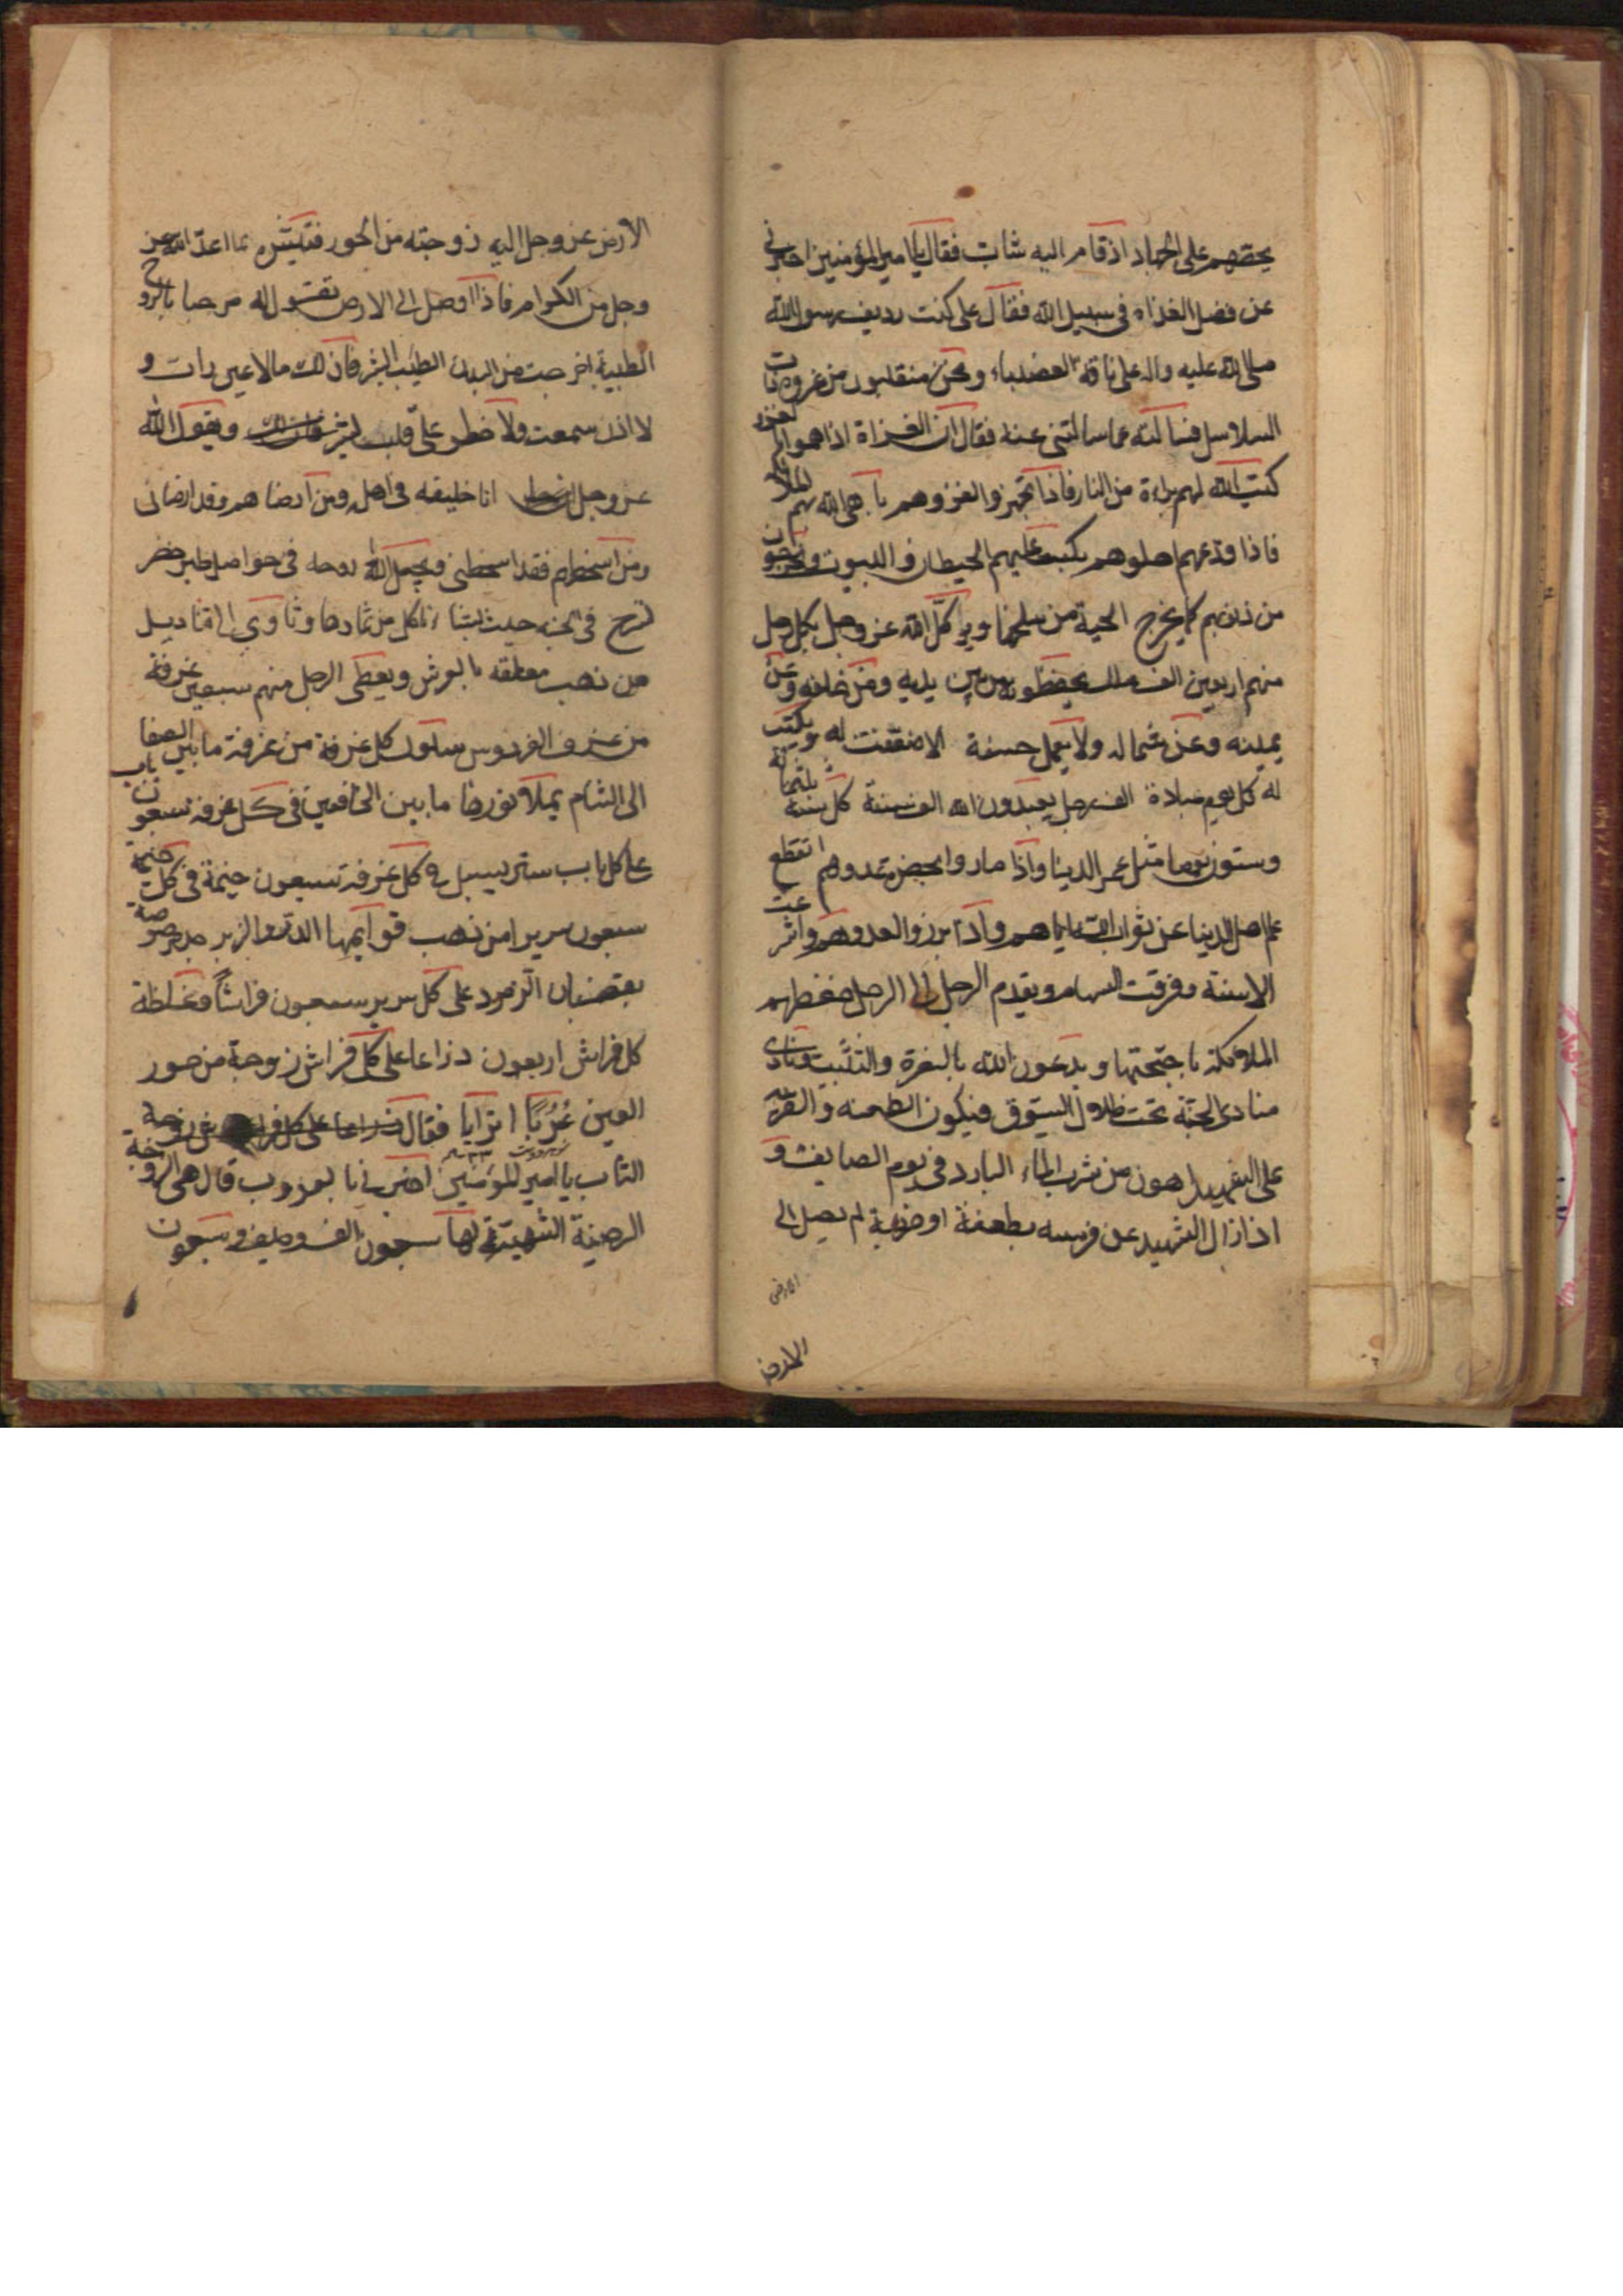 يحضهم على الجهاد اذ قام اليه شاب فقال يا امير المؤمنين اخبرني
عن فضل الغزاه في سبيل الله فقال على كنت رديف رسول الله
صلى الله عليه واله على ناقة العضباء ونحن منقلبون من غزوة ذات
السلاسل فسالته عما سالتني عنه فقال ان الغزاة اذا هموا بالغزو
كتب الله لهم براءة من النار فاذا تجهزوا لغزوهم باهى الله بهم الملائكة
فاذا ودعهم اهلوهم بكت عليهم الحيطان والبيوت ويخرجون
من ذنوبهم كما يخرج الحية من سلخها ويوكل الله عز وجل بكل رجل
منهم اربعين الف ملك يحفظونه من بين يديه ومن خلفه وعن
يمينه وعن شماله ولا يعمل حسنة الا ضعفت له ويكتب
له كل يوم عبادة الف رجل يعبدون الله الف سنة كل سنة ثلثمائة
وستون يوما مثل عمر الدنيا واذا صاروا بحضرة عدوهم انقطع
علم اهل الدنيا عن ثواب الله اياهم واذا برزوا لعدوهم واشرعت
الاسنة وفوقت السهام ويقدم الرجل الى الرجل حفظهم
الملائكة باجنحتها ويدعون الله بالنصرة والتثبيت ونادى
مناد الجنة تحت ظلال السيوف فيكون الطعنه والضربة
على الشهيد اهون من شرب الماء البارد في يوم الصايف و
اذا زال الشهيد عن فرسه بطعنة او ضربة لم يصل الى
الارض
الارض
الارض عز وجل اليه زوجته من الحور فتبشره بما اعد الله عز
وجل من الكرامه فاذا وصل الى الارض تقول له مرحبا بالروح
الطيبة اخرجت من البدن الطيب ابشر فان لك ما لا عين رات و
لا اذن سمعت ولا خطر على قلب بشر ويقول الله
عز وجل انا خليفه في اهله ومن ارضاهم فقد ارضاني
ومن اسخطهم فقد اسخطني ويجعل الله روحه في حواصل طير خضر
تسرح في الجنه حيث تشاء تاكل من ثمارها وتاوي الى قناديل
من ذهب معلقه بالعرش ويعطى الرجل منهم سبعين غرفة
من غرف الفردوس سلوك كل غرفة من غرفة ما بين الصفا
الى الشام يملا نورها ما بين الخافقين في كل غرفة سبعون باب
على كل باب ستر يسبل في كل غرفة سبعون خيمة في كل خيمة
سبعون سريرا من ذهب قوائمها الدر والزبرجد مرصوصة
بقضبان الزمرد على كل سرير سبعون فراشا غلظة
كل فراش اربعون ذراعا على كل فراش زوجة من حور
العين عُرُبًا اترابا فقال
الشاب يا امير المؤمنين اخبرني بالعروب قال هي الزوجة
الرضية الشهية لها سبعون الف وصيف وسبعون